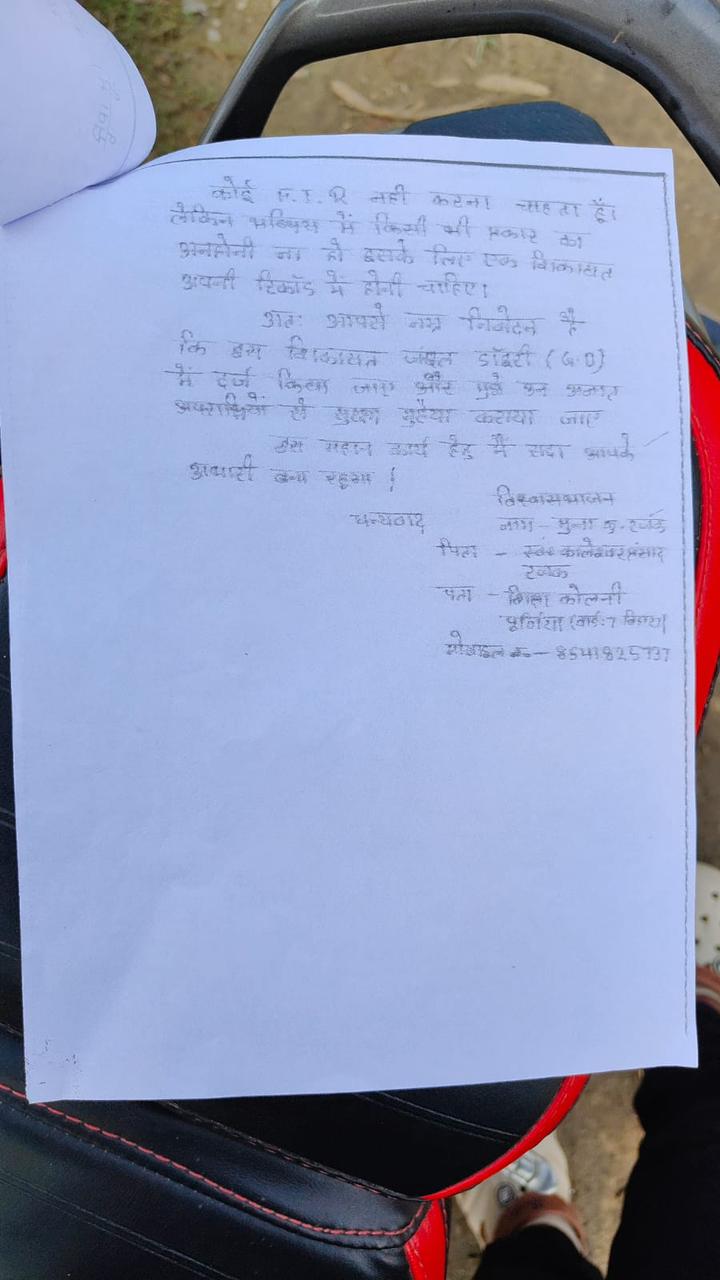 कोई F.I.R नही करना चाहता हूँ।
लेकिन भविष्य में किसी भी प्रकार का
अनहोनी ना हो इसके लिए एक शिकायत
अपनी रिकॉड में होनी चाहिए।
अतः आपसे नम्र निवेदन है
कि इस शिकायत जेनरल डॉइरी (G.D)
में दर्ज किया जाए और मुझे उन अज्ञात
अपराधियों से सुरक्षा मुहैया कराया जाए
इस महान कार्य हेतु मैं सदा आपके
आभारी बना रहूगा।
विश्वासभाजन
धन्यवाद नाम - मुन्ना कु. रजक
पिता - स्व० कालेश्वर प्रसाद
रजक
पता - शिक्षा कोलनी
पूर्णिया (वार्ड:7
मोबाइल न० - 8541825737